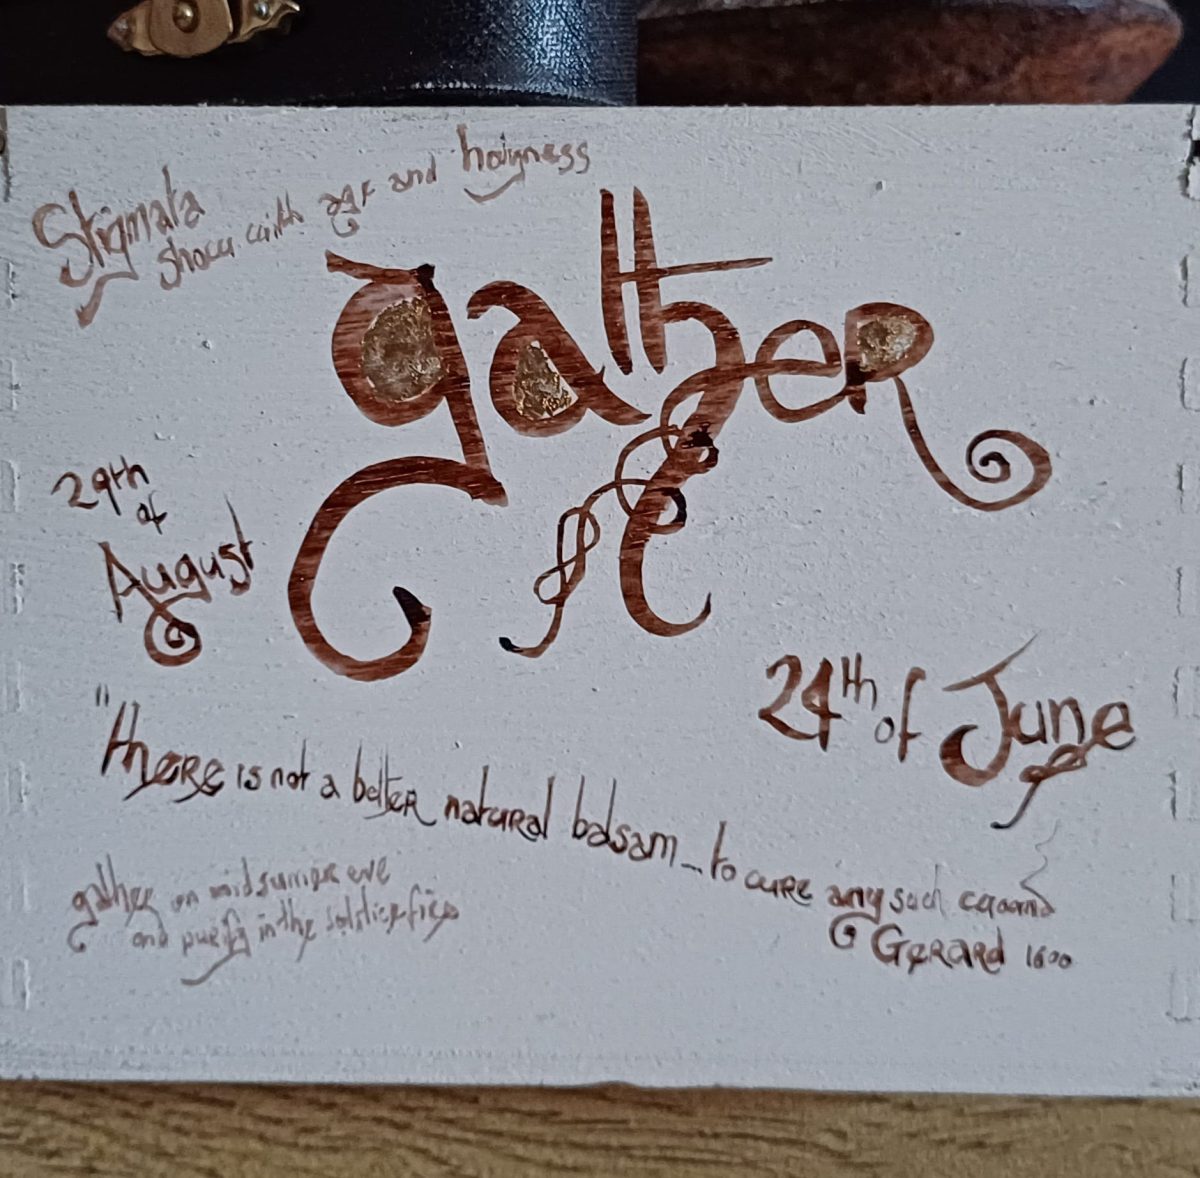 Stigmata
show with age and holyness
gather
29th
of
August
24th of June
"there is not a better natural balsam _ to cure any such
Gerard 1600
gather on midsummer eve
and purify in the solstice fires